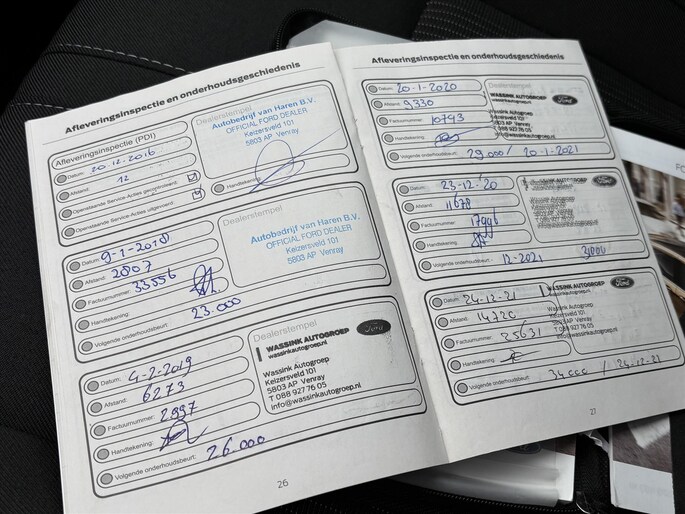 Afleveringsinspectie en onderhoudsgeschiedenis
Afleveringsinspectie (PDI)
Datum: 20-12-2016
Afstand: 12
Openstaande Service-Acties gecontroleerd:
Openstaande Service-Acties uitgevoerd:
Dealerstempel
Autobedrijf van Haren B.V.
OFFICIAL FORD DEALER
Keizersveld 101
5803 AP Venray
Handtekening:
Datum: 9-1-2018
Afstand: 2807
Factuurnummer: 33556
Handtekening:
Volgende onderhoudsbeurt: 23.000
Dealerstempel
Autobedrijf van Haren B.V.
OFFICIAL FORD DEALER
Keizersveld 101
5803 AP Venray
Datum: 4-2-2019
Afstand: 6273
Factuurnummer: 2997
Handtekening:
Volgende onderhoudsbeurt: 26.000
Dealerstempel
WASSINK AUTOGROEP
wassinkautogroep.nl
Ford
Wassink Autogroep
Keizersveld 101
5803 AP Venray
T 088 927 76 05
info@wassinkautogroep.nl
26
Afleveringsinspectie en onderhoudsgeschiedenis
Datum: 20-1-2020
Afstand: 9330
Factuurnummer: 10793
Handtekening:
Volgende onderhoudsbeurt: 29.000 / 20-1-2021
Dealerstempel
WASSINK AUTOGROEP
wassinkautogroep.nl
Ford
Wassink Autogroep
Keizersveld 101
5803 AP Venray
T 088 927 76 05
info@wassinkautogroep.nl
Datum: 23-12-'20
Afstand: 11678
Factuurnummer: 17996
Handtekening:
Volgende onderhoudsbeurt: 12-2021
Ford
Datum: 24-12-21
Afstand: 14220
Factuurnummer: 25631
Handtekening:
Volgende onderhoudsbeurt: 34000 / 24-12-21
WASSINK AUTOGROEP
wassinkautogroep.nl
Ford
Wassink Autogroep
Keizersveld 101
5803 AP Venray
T 088 927 76 05
info@wassinkautogroep.nl
27